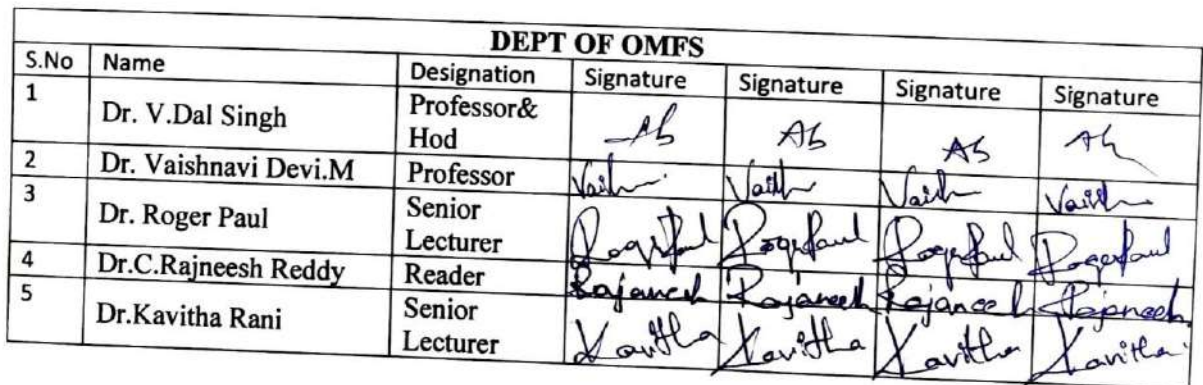 DEPT OF OMFS
S.No Name Designation Signature Signature Signature Signature
1 Dr. V.Dal Singh Professor& Hod Ab Ab Ab Ab
2 Dr. Vaishnavi Devi.M Professor Vaish Vaish Vaish Vaish
3 Dr. Roger Paul Senior Lecturer RogerPaul RogerPaul RogerPaul RogerPaul
4 Dr.C.Rajneesh Reddy Reader Rajaneesh Rajaneesh Rajaneesh Rajaneesh
5 Dr.Kavitha Rani Senior Lecturer Kavitha Kavitha Kavitha Kavitha